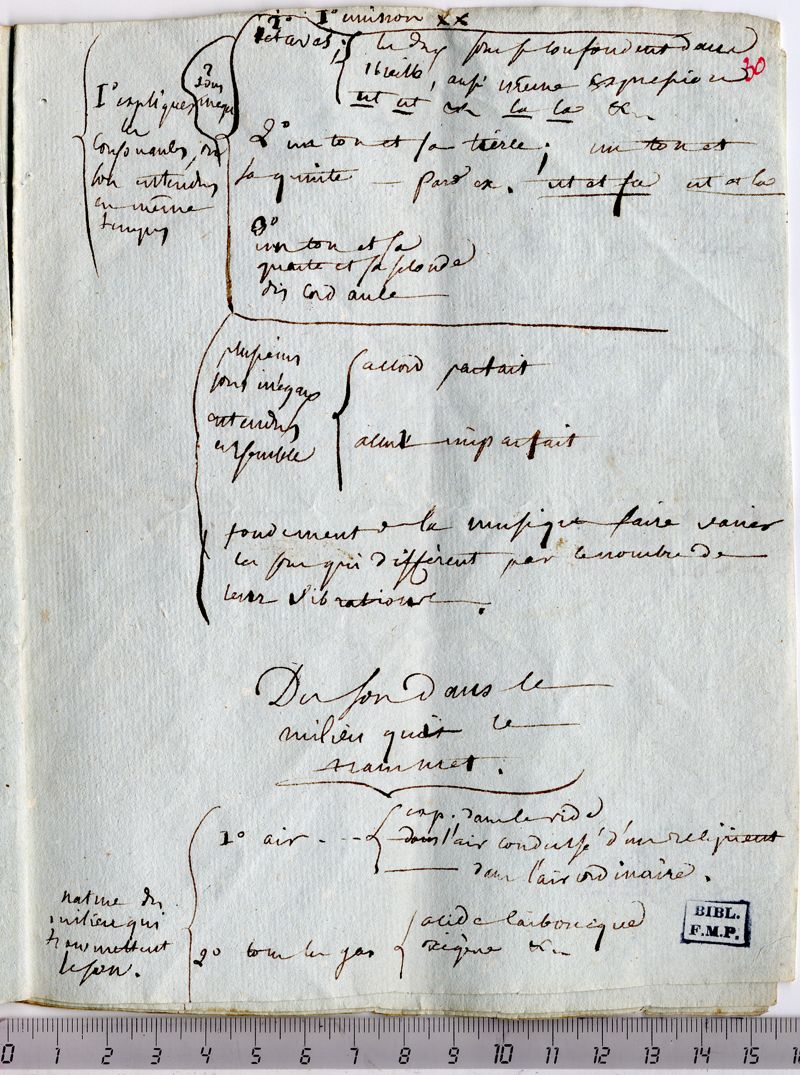 1° unisson xx
octaves;
les deux sons se confondent dans
l'oreille, aussi même expression
ut ut &c la la &c
30
2 sons inégaux
1° expliquer
les
consonantes, on
son entendus
en même
temps
2° un ton et sa tierce; un ton et
sa quinte — par ex. ut et sa ut et la
3°
un ton et sa
quarte et sa seconde
discordante
plusieurs
sons inégaux
entendus
ensemble
accord parfait
accord imparfait
fondement de la musique faire varier
les sons qui diffèrent par le nombre de
leur vibrations.
Du son dans le
milieu qui le
transmet.
nature du
milieu qui
transmettent
le son.
1° air - - -
exp. dans le vide
dans l'air condensé d'un récipient
— dans l'air ordinaire.
2° tous les gas
acide carbonique
oxigène &c
BIBL.
F.M.P.
0 1 2 3 4 5 6 7 8 9 10 11 12 13 14 15